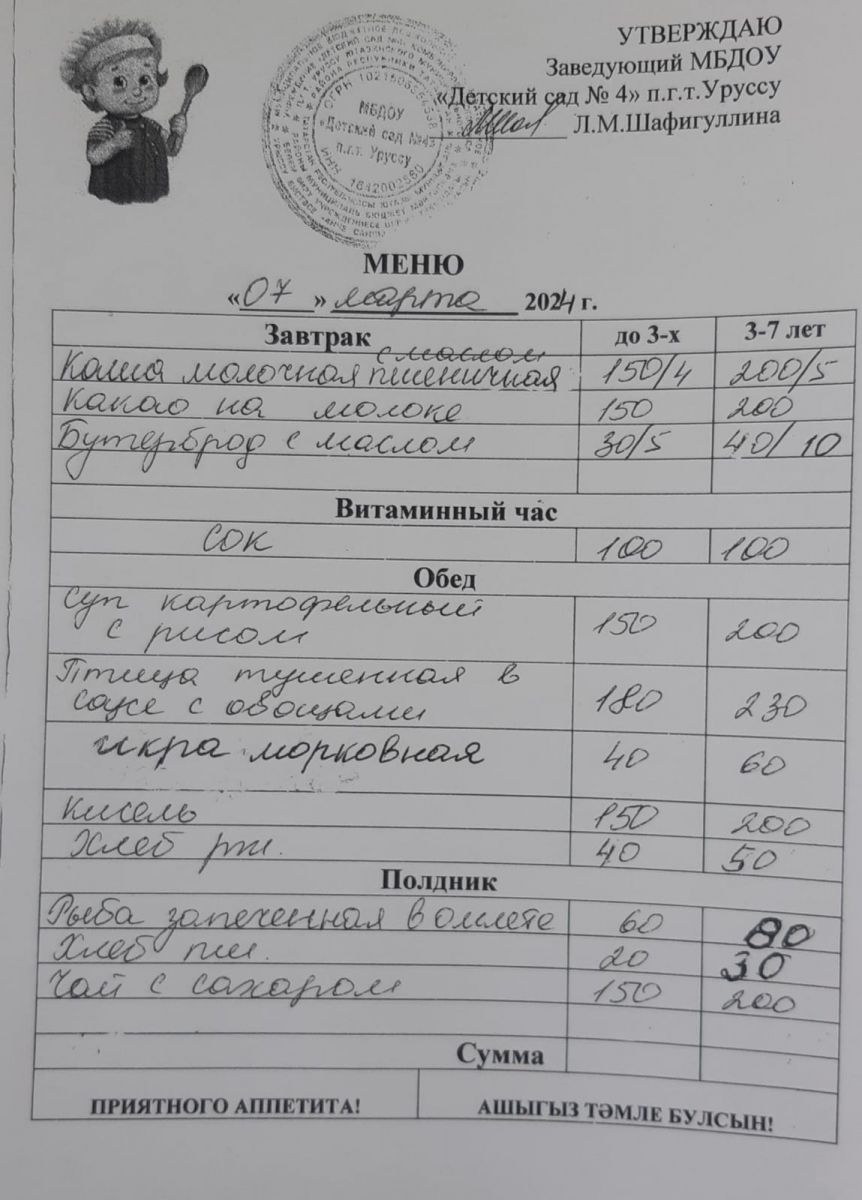 УТВЕРЖДАЮ
Заведующий МБДОУ
«Детский сад № 4» п.г.т.Уруссу
Л.М.Шафигуллина
МБДОУ
«Детский сад №4»
п.г.т. Уруссу
МЕНЮ
«07» марта 2024 г.
Завтрак до 3-х 3-7 лет
с маслом
Каша молочная пшеничная 150/4 200/5
Какао на молоке 150 200
Бутерброд с маслом 30/5 40/10
Витаминный час
сок 100 100
Обед
Суп картофельный
с рисом 150 200
Птица тушенная в
соусе с овощами 180 230
икра морковная 40 60
Кисель 150 200
Хлеб рж. 40 50
Полдник
Рыба запеченная в омлете 60 80
Хлеб пш. 20 30
Чай с сахаром 150 200
Сумма
ПРИЯТНОГО АППЕТИТА! АШЫГЫЗ ТӘМЛЕ БУЛСЫН!